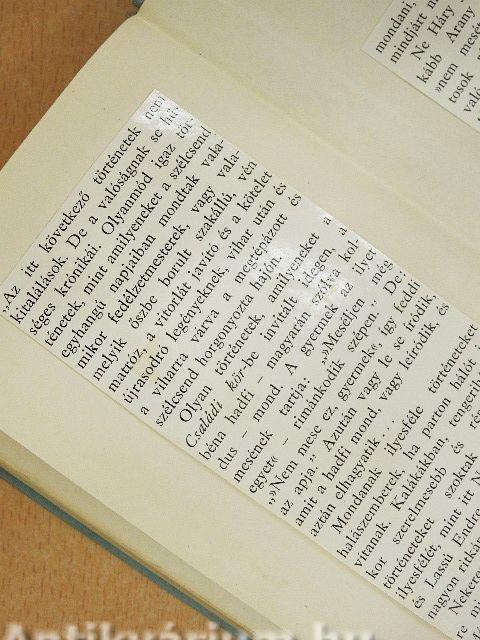 „Az itt következő történetek nem
kitalálások. De a valóságnak se hű-
séges krónikái. Olyanmód igaz tör-
ténetek, mint amilyeneket a szélcsend
egyhangú napjaiban mondtak vala-
mikor fedélzetmesterek, vagy vala-
melyik őszbe borult szakállú, vén
matróz, a vitorlát javító és a kötelet
újrasodró legényeknek, vihar után és
a viharra várva a megtépázott és
szélcsend horgonyozta hajón.
Olyan történetek, amilyeneket a
Családi kör-be invitált idegen, a
béna hadfi – magyarán szólva kol-
dus – mond. A gyermek az ilyet
mesének tartja: »Meséljen még
egyet« – rimánkodik szépen." De:
„»Nem mese ez, gyermek«, így feddi
az apja." Azután vagy le se íródik,
amit a hadfi mond, vagy leíródik, és
aztán elhagyatik...
Mondanak ilyesféle történeteket
halászemberek, ha parton hálót
vítanak. Kalákákban, tengeri
kor szerelmesebb és
történeteket szoktak
ilyesfélét, mint itt
és Lassú Endre
nagyon ritká
Nekere
mondani,
mindjárt
Ne Háry
kább Arany
»nem mesé
tosok
való
Antikvárium.hu